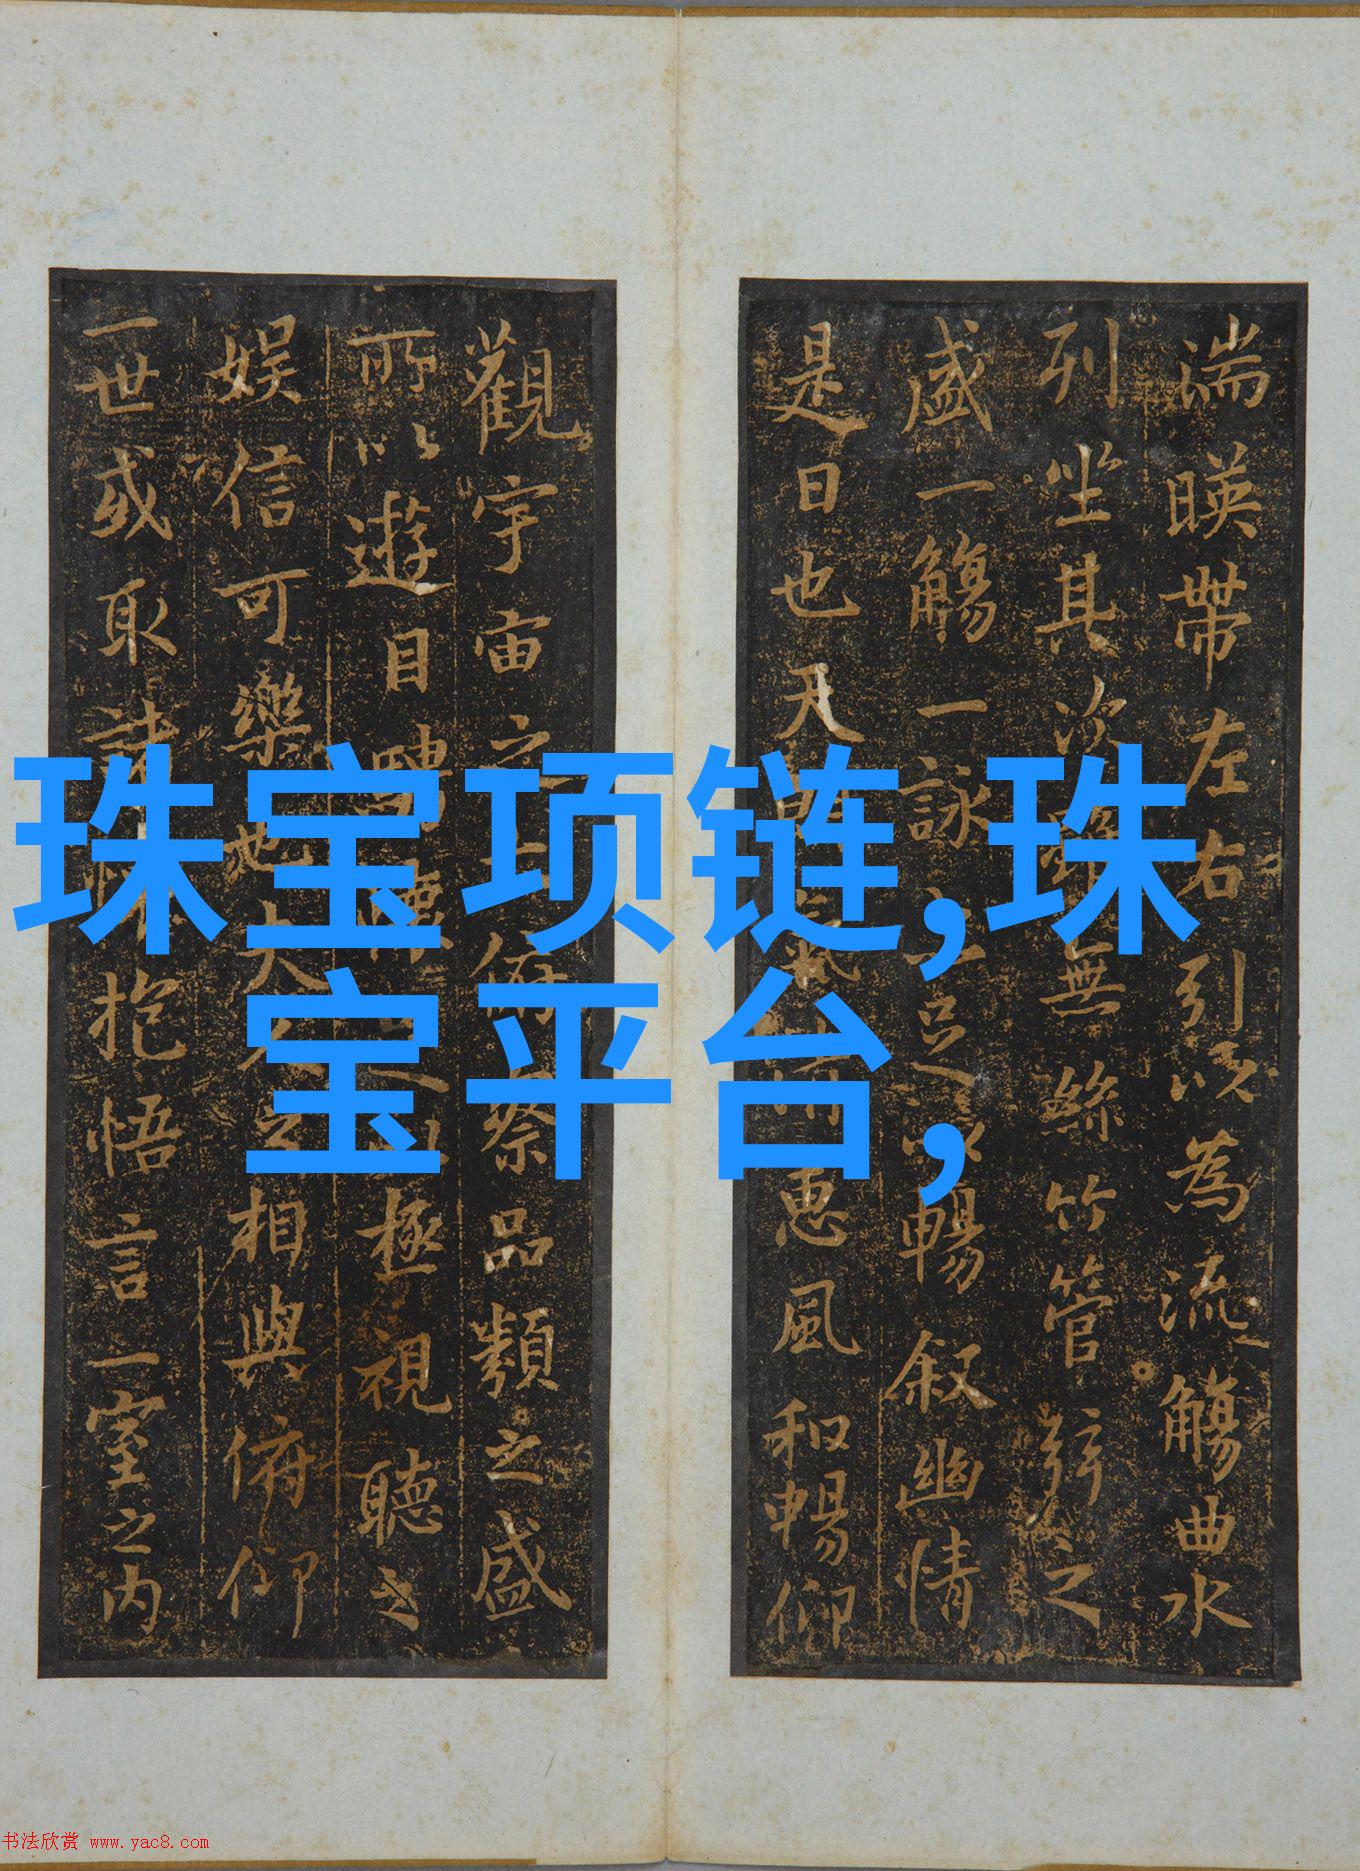 珠宝项链,珠
宝平台,
湍暎帶左右引以為流觴曲水
列坐其次無絲竹管弦之
盛一觴一詠足以暢叙幽情
是日也天惠風和暢仰
觀宇宙之俯察品類之盛
所以遊目騁極視聽之
娱信可樂也夫人之相與俯仰
一世或取諸抱悟言一室之内
书法欣赏 www.yac8.com